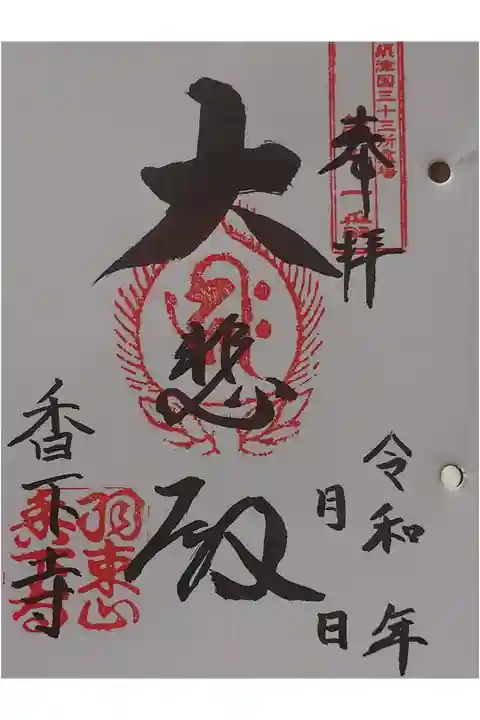 摂津国三十三所霊場
奉拝
大悲殿
令和 年
月 日
香下寺
羽束山